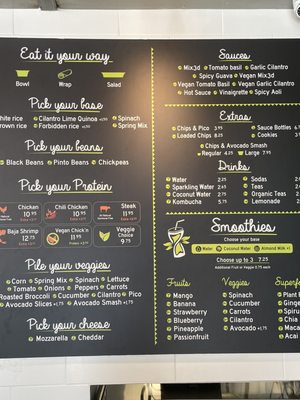 Eat it your way
Bowl
Wrap
Salad
Pick your base
White rice
Cilantro Lime Quinoa
Spinach
Brown rice
Forbidden rice
Spring Mix
Pick your beans
Black Beans
Pinto Beans
Chickpeas
Pick your Protein
Chicken
10.95
Chili Chicken
10.95
Steak
11.95
Baja Shrimp
12.25
Vegan Chick'n
11.95
Veggie Choice
9.75
Pile your veggies
Corn
Spring Mix
Spinach
Lettuce
Tomato
Onions
Peppers
Carrots
Roasted Broccoli
Cucumber
Cilantro
Pico
Avocado Slices +1.75
Avocado Smash +1.75
Pick your cheese
Mozzarella
Cheddar
Sauces
Mix3d
Tomato basil
Garlic Cilantro
Spicy Guava
Vegan Mix3d
Vegan Tomato Basil
Vegan Garlic Cilantro
Hot Sauce
Vinaigrette
Spicy Aoli
Extras
Chips & Pico 3.95
Sauce Bottles
Loaded Chips 8.25
Cookies
Chips & Avocado Smash
Regular 4.25
Large 7.95
Drinks
Water
Sodas
Sparkling Water
Teas
Coconut Water
Organic Teas
Kombucha
Lemonade
Smoothies
Choose your base
Water
Coconut Water
Almond Milk +1
Choose up to 3 7.25
Additional Fruit or Veggie 0.75 each
Fruits
Veggies
Superf
Mango
Spinach
Plant F
Banana
Cucumber
Ginge
Strawberry
Carrots
Spiru
Blueberry
Cilantro
Chia
Pineapple
Avocado +1.75
Maca
Passionfruit
Acai